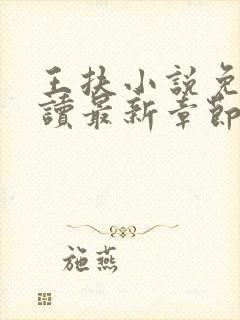 王扶小説免
讀最新章節
施燕